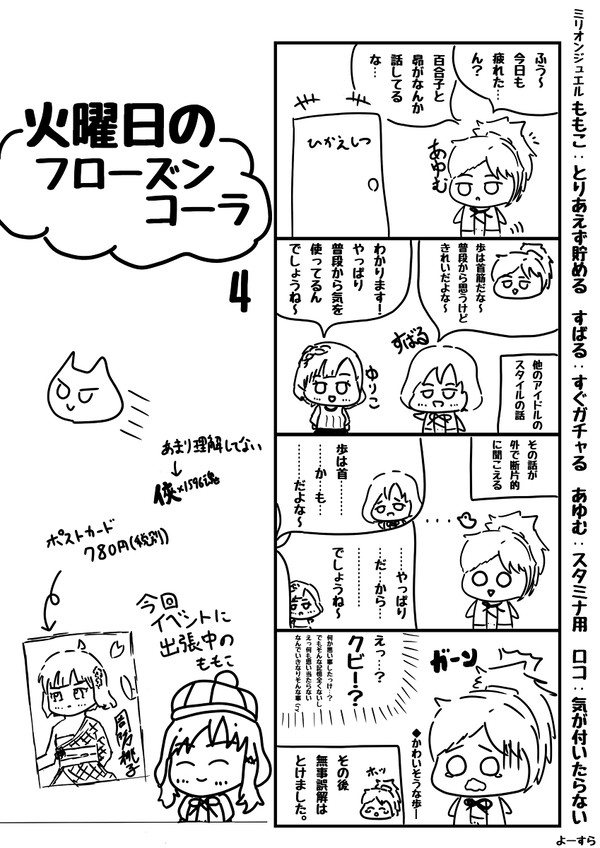 ミリオンジュエル ももこ：とりあえず貯める　すばる：すぐガチャる　あゆむ：スタミナ用　ロコ：気が付いたらない
火曜日の
フローズン
コーラ
4
ふぅ～
今日も
疲れた…
ん？
百合子と
昴がなんか
話してる
な…
あゆむ
ひかえしつ
歩は首筋だな～
普段から思うけど
きれいだよな～
わかります！
やっぱり
普段から気を
使ってるん
でしょうね～
すばる
ゆりこ
他のアイドルの
スタイルの話
その話が
外で断片的
に聞こえる
歩は首……
……か…も…
………だよな～
……やっぱり
……だ…から…
………………
でしょうね～
えっ…？
クビ！？
何か悪い事したっけ…？
でもそんな記憶全くないし
えっ何も思い当たらない
なんでいきなりそんな事
ガーン
◆かわいそうな歩―
その後
無事誤解は
とけました。
ホッ
あまり理解してない
俠×1596魂
ポストカード
780円(税別)
今回
イベントに
出張中の
ももこ
周防桃子
よーすら